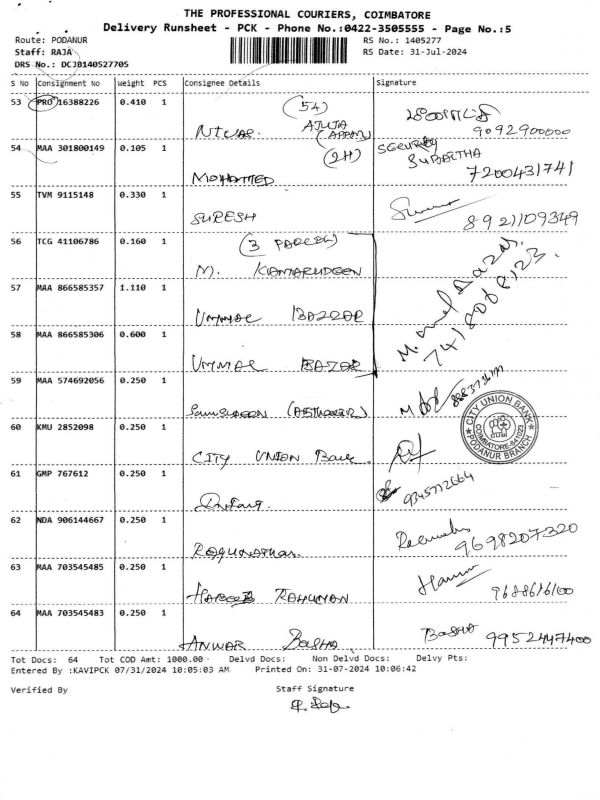 THE PROFESSIONAL COURIERS, COIMBATORE
Delivery Runsheet - PCK - Phone No.:0422-3505555 - Page No.:5
Route: PODANUR RS No.: 1405277
Staff: RAJA RS Date: 31-Jul-2024
DRS No.: DCJB140527705
S No Consignment No Weight PCS Consignee Details Signature
53 PRO 16388226 0.410 1 (54)
9092900000
54 MAA 301800149 0.105 1 (2H) SECURITY
MOHAMMED 7200431741
55 TVM 9115148 0.330 1
SURESH 8921109349
56 TCG 41106786 0.160 1 (3 PARCEL)
M. KAMARUDEEN
57 MAA 866585357 1.110 1
UMMAL BAZZAR
58 MAA 866585306 0.600 1
UMMAL BAZAR
59 MAA 574692056 0.250 1
60 KMU 2852098 0.250 1 CITY UNION BANK
COIMBATORE-641023
PODANUR BRANCH
CITY UNION Bank
61 GMP 767612 0.250 1 9345772664
62 NDA 906144667 0.250 1
RAGUNATHAN 9698207320
63 MAA 703545485 0.250 1
HABEEB RAHUMAN 9688616100
64 MAA 703545483 0.250 1
ANWAR BASHA BASHA 9952447400
Tot Docs: 64 Tot COD Amt: 1000.00 Delvd Docs: Non Delvd Docs: Delvy Pts:
Entered By :KAVIPCK 07/31/2024 10:05:03 AM Printed On: 31-07-2024 10:06:42
Verified By Staff Signature